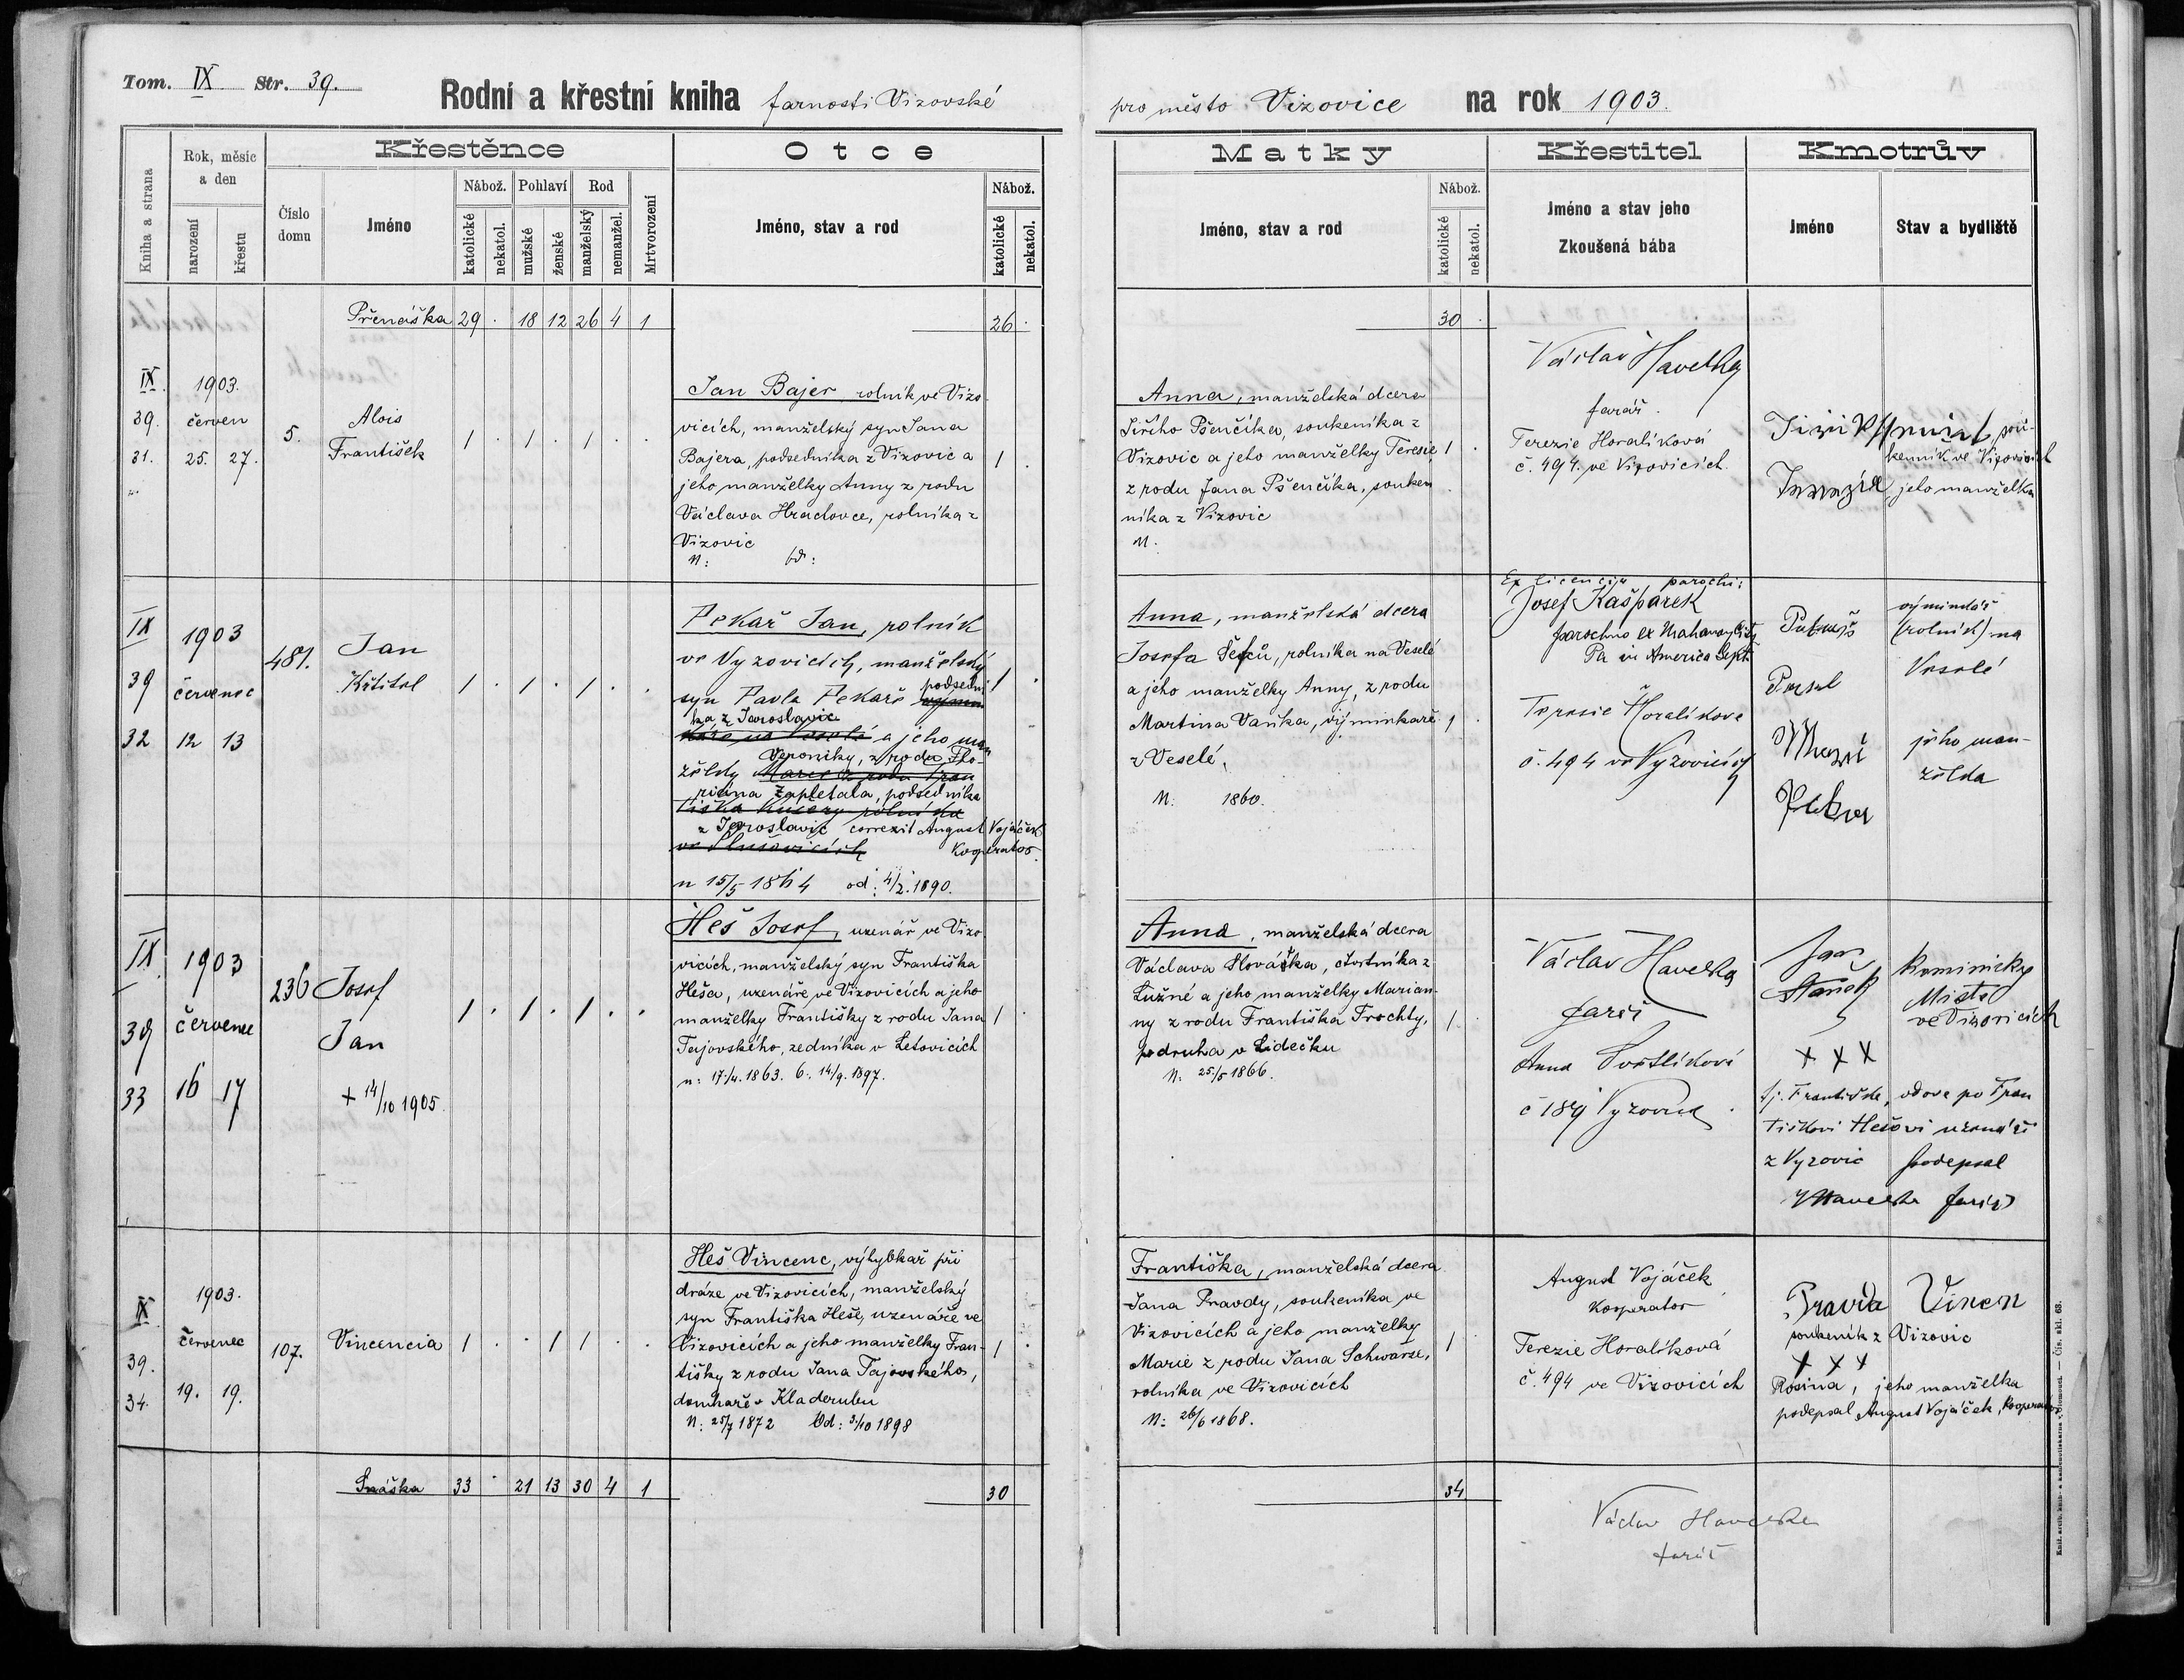 Tom. IX Str. 39.
Rodní a křestní kniha farnosti Vizovské
pro město Vizovice na rok 1903.
Kniha a strana
Rok, měsíc a den
narození
křestu
Křestěnce
Číslo domu
Jméno
Nábož.
katolické
nekatol.
Pohlaví
mužské
ženské
Rod
manželský
nemanžel.
Mrtvorození
Otce
Jméno, stav a rod
Nábož.
katolické
nekatol.
Matky
Jméno, stav a rod
Nábož.
katolické
nekatol.
Křestitel
Jméno a stav jeho
Zkoušená bába
Kmotrův
Jméno
Stav a bydliště
Přenáška 29 . 18 12 26 4 1 26 . 30 .
IX.
39.
31.
1903.
červen
25. 27.
5.
Alois
František
1 . 1 . 1 . .
Jan Bajer rolník ve Vizo-
vicích, manželský syn Jana
Bajera, podsedníka z Vizovic a
jeho manželky Anny z rodu
Václava Hradovce, rolníka z
Vizovic
N:
1 .
Anna, manželská dcera
Jiřího Pšenčíka, soukeníka z
Vizovic a jeho manželky Teresie,
z rodu Jana Pšenčíka, souken
níka z Vizovic
N.
1 .
Václav Havelka
farář.
Terezie Horalíková
č. 494. ve Vizovicích.
sou-
kenník ve Vizovicích
jeho manželka
IX
39
32
1903
červenec
12 13
481.
Jan
Křtitel
1 . 1 . 1 . .
Pekař Jan, rolník
ve Vyzovicích, manželský
syn Pavla Pekaře podsední
ka z Jaroslavic
a jeho man
Veroniky, z rodu Flo-
želky
riána Zapletala, podsedníka
z Jaroslavic correxit August Vojáček
Kooperator.
n 15/5 1864 od: 4/2. 1890.
1 .
Anna, manželská dcera
Josefa Šefců, rolníka na Veselé
a jeho manželky Anny, z rodu
Martina Vaňka, výminkaře
z Veselé.
N: 1860.
1 .
Ex licencia parochi:
Josef Kašpárek
parochus ex Mahanoy City
Pa in America Sept.
Teresie Horalíkova
č. 494 ve Vyzovicích
výminkář
(rolník) na
Veselé
jeho man-
želka
IX
39
33
1903
červenec
16 17
236
Josef
Jan
+ 14/10 1905.
1 . 1 . 1 . .
Heš Josef, uzenář ve Vizo
vicích, manželský syn Františka
Heša, uzenáře ve Vizovicích a jeho
manželky Františky z rodu Jana
Tajovského, zedníka v Letovicích
n: 17/4. 1863. 6: 14/9. 1897.
1 .
Anna, manželská dcera
Václava Slováčka, čtvrtníka z
Lužné a jeho manželky Marian-
ny z rodu Františka Trochty,
podruha v Lidečku
N: 25/5 1866.
1 .
Václav Havelka
farář
Anna
č 189 Vyzovice
Jan
Staněk
Kominicky
Mistr
ve Vizovicích
+ + +
tj. Františka, vdova po Fran
tiškovi Hešovi uzenáři
z Vyzovic podepsal
VHavelka farář
IX
39.
34.
1903.
červenec
19. 19.
107.
Vincencia
1 . . 1 1 . .
Heš Vincenc, výhybkař při
dráze ve Vizovicích, manželský
syn Františka Heše, uzenáře ve
Vizovicích a jeho manželky Fran-
tišky z rodu Jana Tajovského,
domkaře v Kladerubu
N: 25/7 1872 Od: 3/10 1898
1 .
Františka, manželská dcera
Jana Pravdy, soukeníka ve
Vizovicích a jeho manželky
Marie z rodu Jana Schwarze,
rolníka ve Vizovicích
N: 26/6 1868.
1 .
August Vojáček
Kooperator
Terezie Horalíková
č. 494 ve Vizovicích
Pravda Vincen
soukeník z Vizovic
+ + +
Rosina, jeho manželka
podepsal August Vojáček, Kooperator
Snáška 33 . 21 13 30 4 1 30 34
Václav Havelka
farář